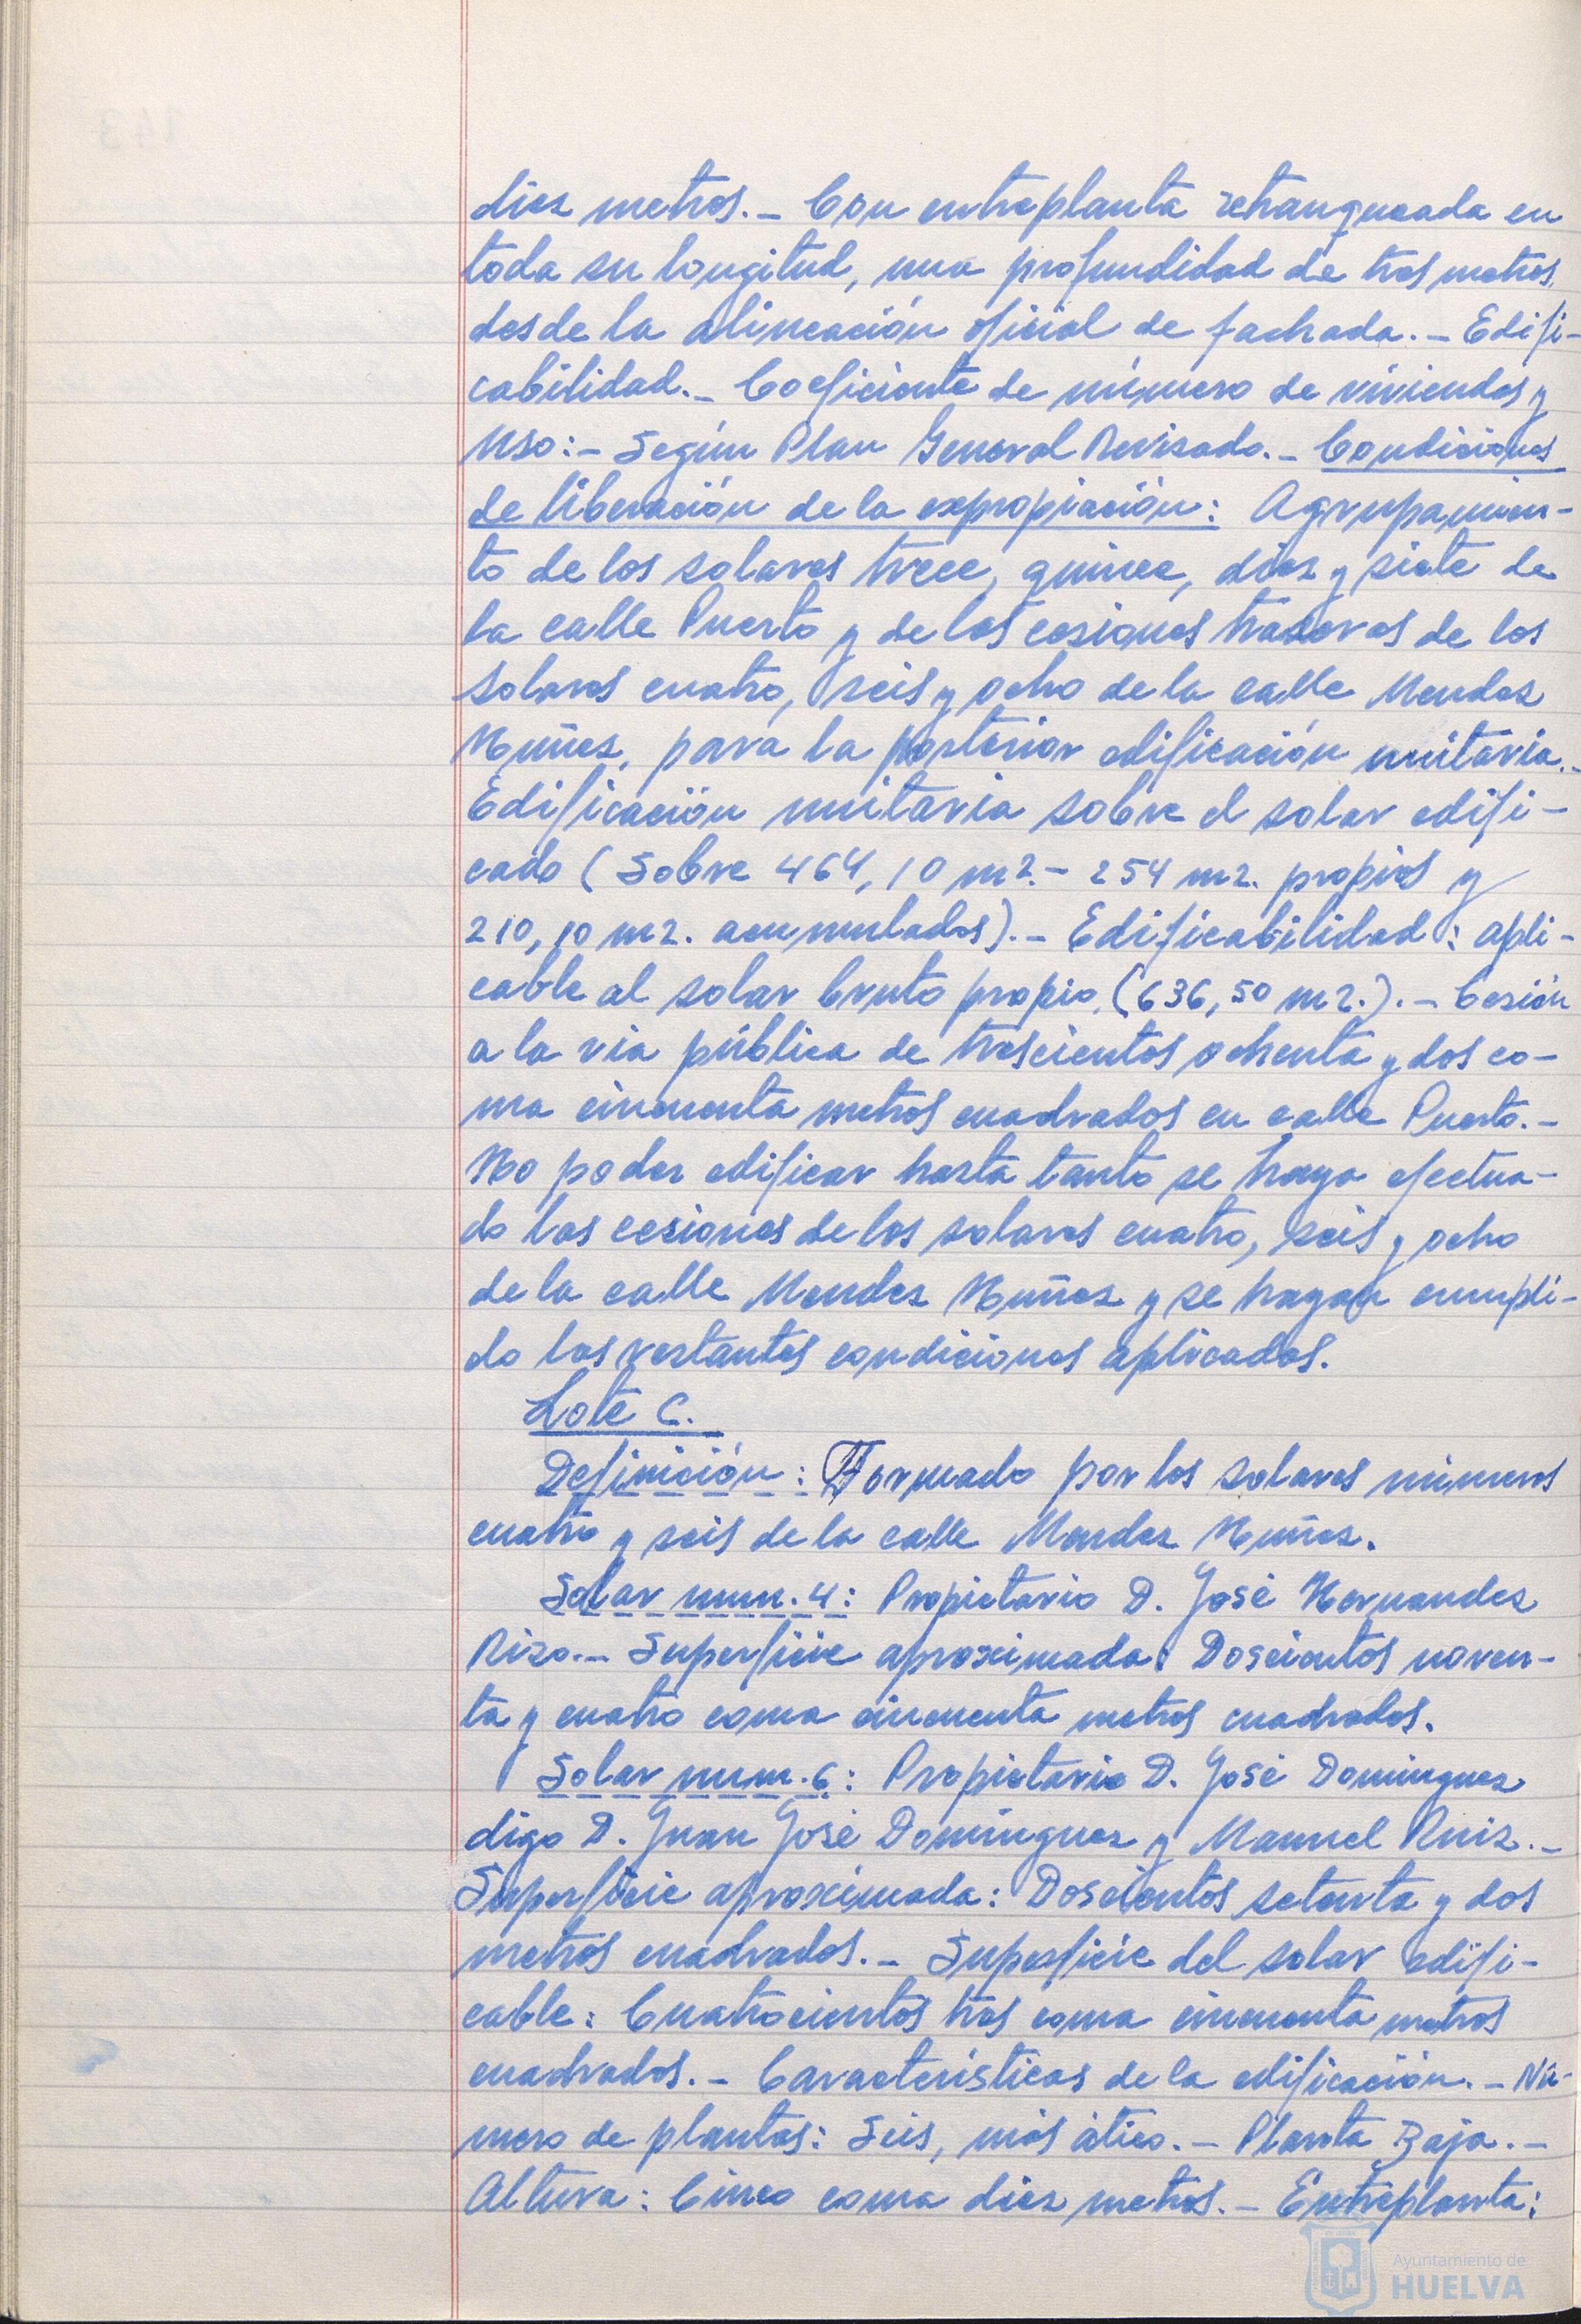 diez metros.- Con entreplanta retranqueada en
toda su longitud, una profundidad de tres metros,
desde la alineación oficial de fachada.- Edifi-
cabilidad.- Coeficiente de número de viviendas y
uso:- Según Plan General Revisado.- Condiciones
de liberación de la expropiación: Agrupamien-
to de los solares trece, quince, diez y siete de
la calle Puerto y de las cesiones traseras de los
solares cuatro, seis y ocho de la calle Mendez
Nuñez, para la posterior edificación unitaria.-
Edificación unitaria sobre el solar edifi-
cado (Sobre 464,10 m2.- 254 m2. propios y
210,10 m2. acumulados).- Edificabilidad: apli-
cable al solar bruto propio (636,50 m2.).- Cesión
a la via pública de trescientos ochenta y dos co-
ma cincuenta metros cuadrados en calle Puerto.-
No poder edificar hasta tanto se haya efectua-
do las cesiones de los solares cuatro, seis y ocho
de la calle Mendez Nuñez y se hayan cumpli-
do las restantes condiciones aplicadas.
Lote C.
Definición: Formado por los solares números
cuatro y seis de la calle Mendez Nuñez.
Solar num. 4: Propietario D. José Hernandez
Rizo.- Superficie aproximada: Doscientos noven-
ta y cuatro coma cincuenta metros cuadrados.
Solar num. 6: Propietario D. José Dominguez
digo D. Juan José Domínguez y Manuel Ruiz.-
Superficie aproximada: Doscientos setenta y dos
metros cuadrados.- Superficie del solar edifi-
cable: Cuatrocientos tres coma cincuenta metros
cuadrados.- Características de la edificación.- Nú-
mero de plantas: Seis, más ático.- Planta Baja.-
Altura: Cinco coma diez metros.- Entreplanta:
Ayuntamiento de
HUELVA